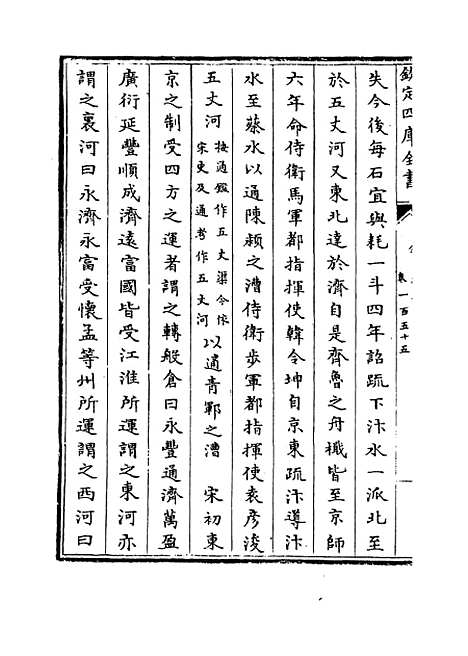 欽定四庫全書
卷一百五十五
失今後每石宜與耗一斗四年詔疏下汴水一派北至
於五丈河又東北達於濟自是齊魯之舟檝皆至京師
六年命侍衛馬軍都指揮使韓令坤自京東疏汴導汴
水至蔡水以通陳潁之漕侍衛步軍都指揮使袁彦浚
五丈河按通鑑作五丈渠今依宋史及通考作五丈河以通青鄆之漕 宋初東
京之制受四方之運者謂之轉般倉曰永豐通濟萬盈
廣衍延豐順成濟遠富國皆受江淮所運謂之東河亦
謂之裏河曰永濟永富受懷孟等州所運謂之西河曰